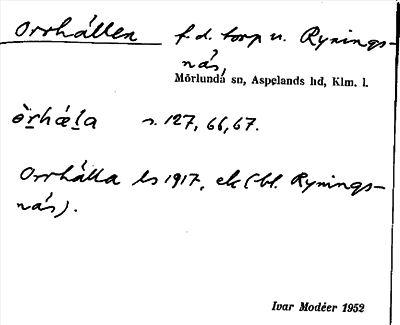 Orrhållen f.d. torp u. Rynings-
näs,
Mörlunda sn, Aspelands hd, Klm. l.
òrhæla s. 127, 66, 67.
Orrhälla ls 1917, ek (bl. Rynings-
näs).
Ivar Modéer 1952